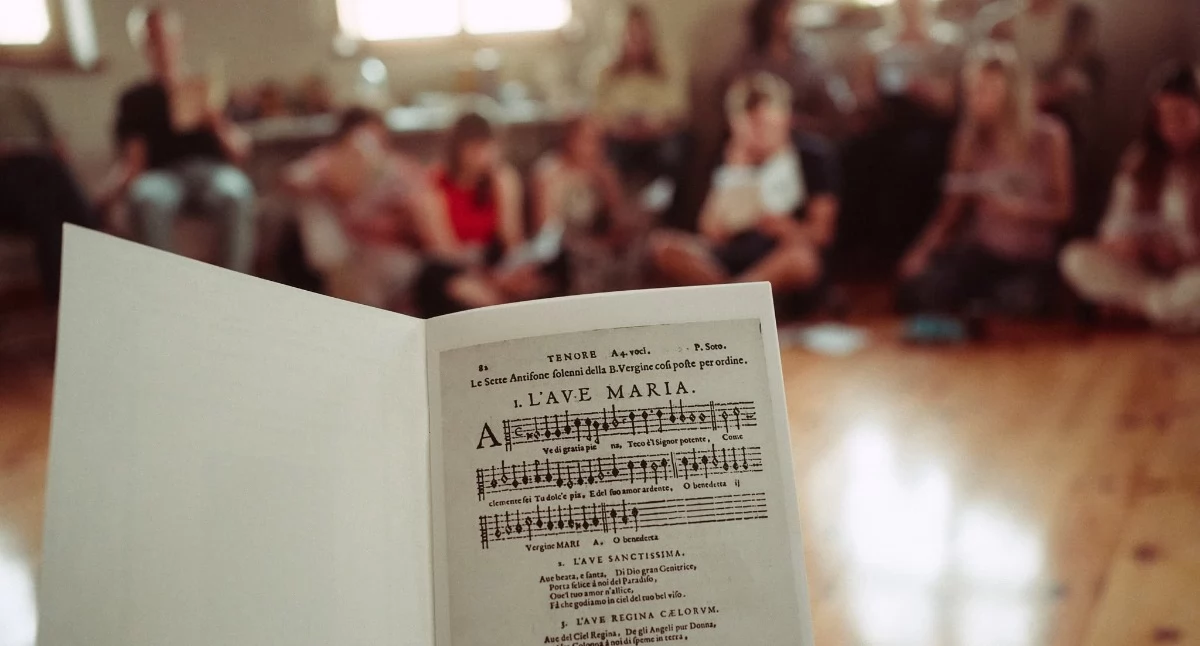 82 TENORE A 4. voci. P. Soto.
Le Sette Antifone ſolenni della B. Vergine coſi poſte per ordine.
1. L'AVE MARIA.
A Ve di gratia pie na, Teco è'l Signor potente, Come
clemente ſei Tu dolc'e pia, E del ſuo amor ardente, O benedetta ij
Vergine MARI A. O benedetta
2. L'AVE SANCTISSIMA.
Aue beata, e ſanta, Di Dio gran Genitrice,
Porta felice à noi del Paradiſo,
Que'l tuo amor n'allice,
Fà che godiamo in ciel del tuo bel viſo.
3. L'AVE REGINA CÆLORVM.
Aue del Ciel Regina, De gli Angeli pur Donna,
Colonna à noi di ſpeme in terra,